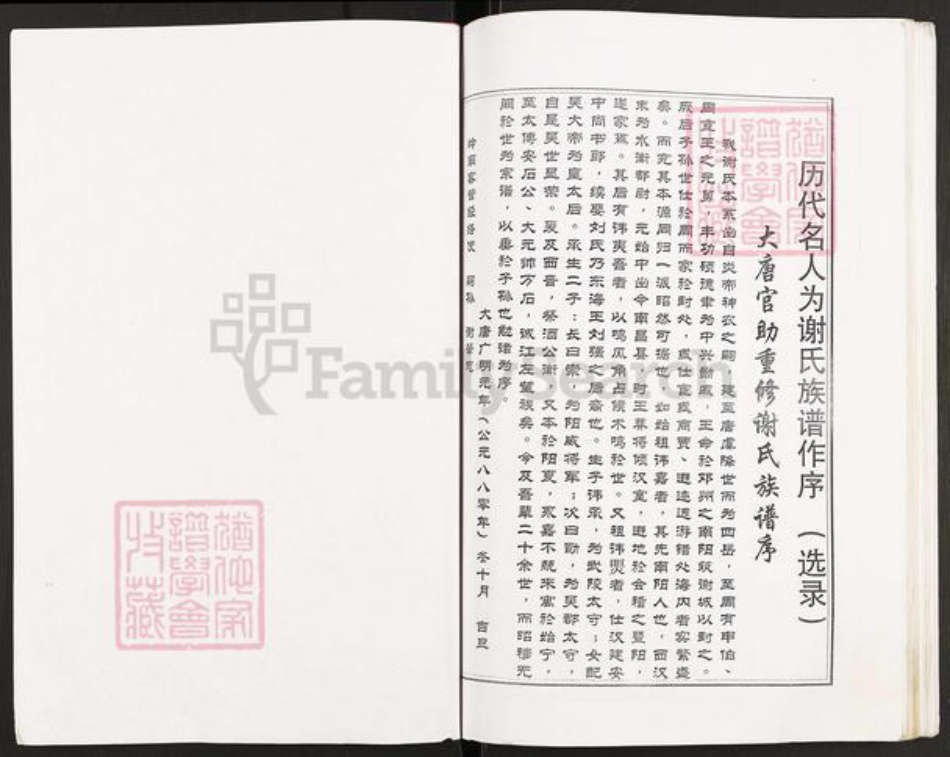 历代名人为谢氏族谱作序 (选录)
大唐官助重修谢氏族谱序
我谢氏本系出自炎帝神农之嗣 建至唐虞降世而为四岳,至周有申伯、
周宣王之元舅,丰功硕德聿为中兴勋戚,王命於邓州之南阳筑谢城以封之。
厥后子孙世仕於周而家於封处,或仕宦或商贾、迁迹远游错处海内者实繁盛
矣。而究其本源同归一派昭然可据也 如始祖讳嘉者,其先南阳人也,西汉
末为水衡都尉,元始中出令南昌县 时王莽将倾汉室,避地於会稽之暨阳,
遂家焉。其后有讳夷吾者,以鸣风角占候术鸣於世。又祖讳煚者,仕汉建安
中尚书郎,续娶刘氏乃东海王刘强之后裔也。生子讳承,为武陵太守;女配
吴大帝为皇太后。承生二子:长曰崇 为阳威将军;次曰勖,为吴郡太守,
自是吴世显荣。爰及西晋,祭酒公衡,又本於阳夏,永嘉不竞来寓於始宁,
至太傅安石公、大元帅万石,诚江左望族矣。今及吾辈二十余世,而昭穆无
闻於世为宗谱,以垂於子孙也勉诸为序。
大唐广明元年(公元八八零年)冬十月 吉旦
岭 经 使 嗣孙 谢
FamilySearch
犹他家
谱学会
收藏
犹他家
谱学会
收藏